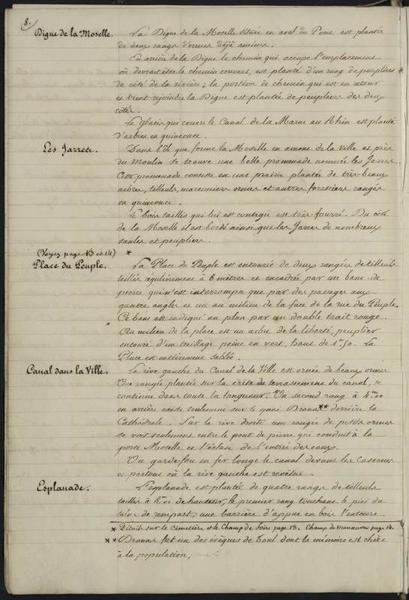 8.
Digue de la Moselle. La Digue de la Moselle située en aval du Pont est plantée
de deux rangs d'ormes déjà anciens.
En arrière de la Digue le chemin qui occupe l'emplacement
où devrait être le chemin couvert, est planté d'un rang de peupliers
du côté de la rivière; la portion de chemin qui est en retour
et vient rejoindre la Digue est plantée de peupliers des deux
côtés.
Le glacis qui couvre le Canal de la Marne au Rhin est planté
d'arbres en quinconce.
Les Jarres. Dans l'Ile que forme la Moselle en amont de la ville et près
du Moulin se trouve une belle promenade nommée les Jarres.
Cette promenade consiste en une prairie plantée de très beaux
arbres, tilleuls, marronniers ormes et autres forestiers rangés
en quinconce.
Le bois taillis qui lui est contigu est très fourré. Du côté
de la Moselle il est bordé ainsi que les Jarres de nombreux
saules et peupliers.
(Voyez page 13 et 14) *
Place du Peuple. La Place du Peuple est entourée de deux rangées de tilleuls
taillés régulièrement à 6 mètres et encadrée par un banc de
pierre qui n'est interrompu que par des passages aux
quatre angles et un au milieu de la face de la rue du Peuple.
Ce banc est indiqué en plan par un double trait rouge.
Au milieu de la place est un arbre de la liberté, peuplier
entouré d'un treillage peint en vert, haut de 1m50. La
Place est entièrement sablée.
Canal dans la Ville. La rive gauche du Canal de la Ville est ornée de beaux ormes
Une rangée plantée sur la crête du terrassement du canal, se
continue dans toute la longueur. Un second rang à 4m00
en arrière existe seulement sur le quai Drouas ** derrière la
Cathédrale. Sur la rive droite une rangée de petits ormes
se voit seulement entre le pont de pierre qui conduit à la
porte Moselle, et l'écluse de l'entrée des eaux.
Un garde-fou en fer longe le canal devant les Casernes
et partout où la rive gauche est revêtue.
Esplanade. L'esplanade est plantée de quatre rangs de tilleuls
taillés à 6m de hauteur, le premier rang touchant le pied du
talus de rempart, une barrière d'appui en bois l'entoure.
* Détails sur le Cimetière et le Champ de foire page 13. Champ de manœuvres page 14.
** Drouas fut un des évêques de Toul dont la mémoire est chère
à la population;